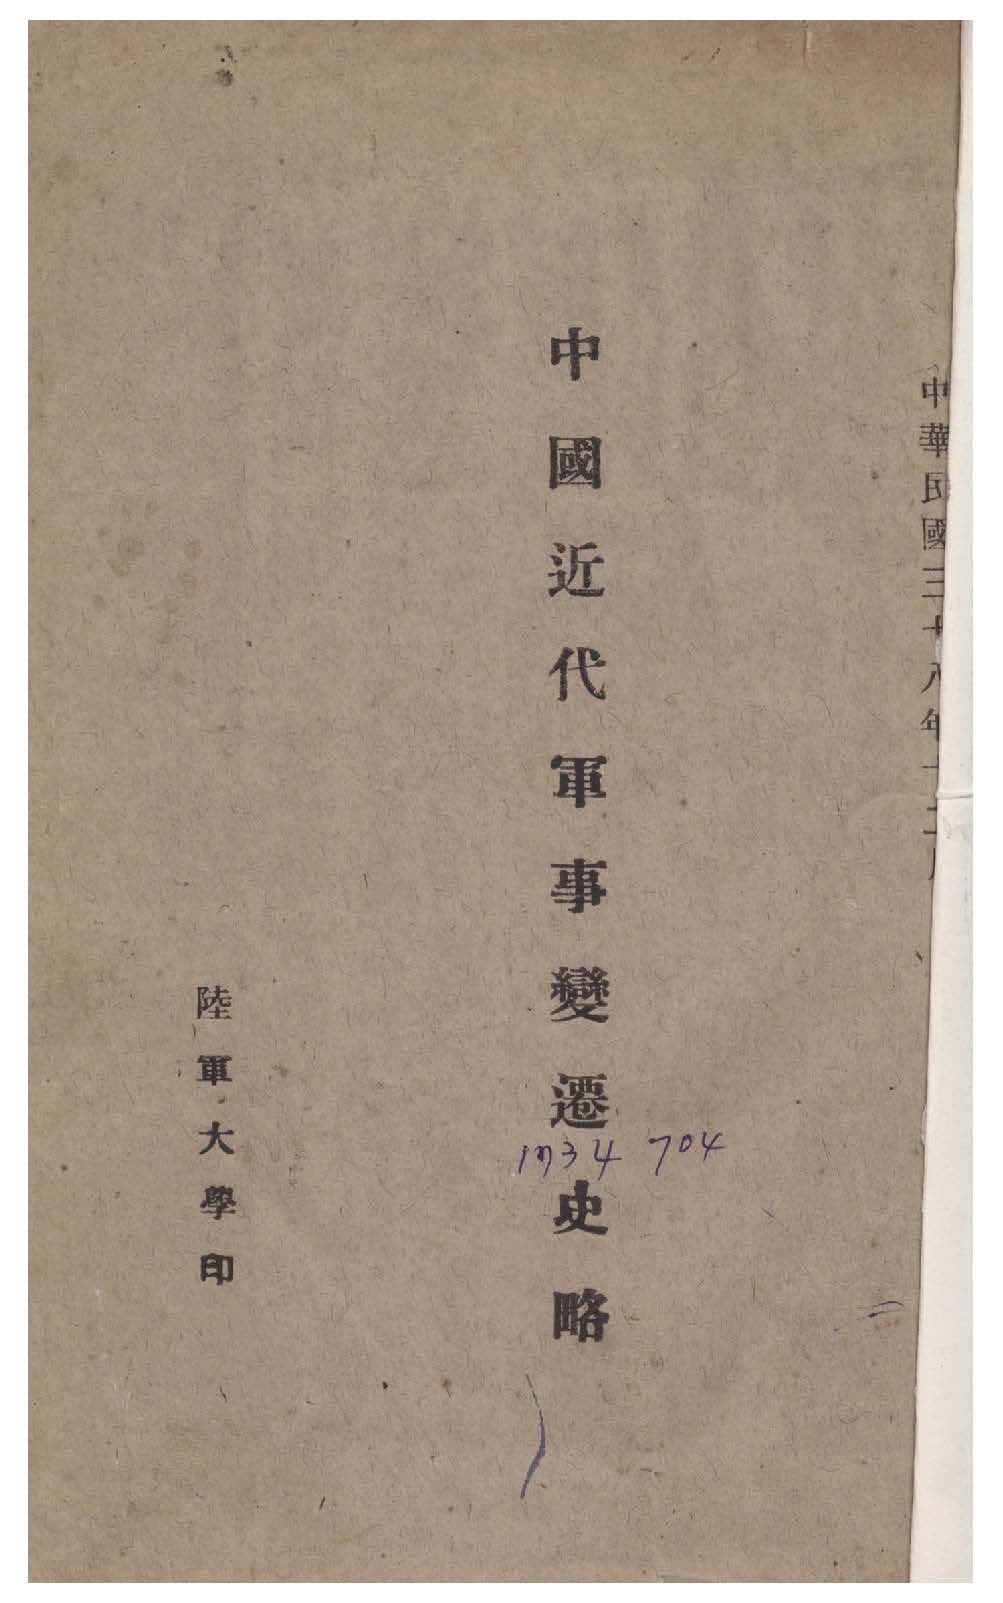 中華民國三十八年十二月
中國近代軍事變遷史略
陸軍大學印
704